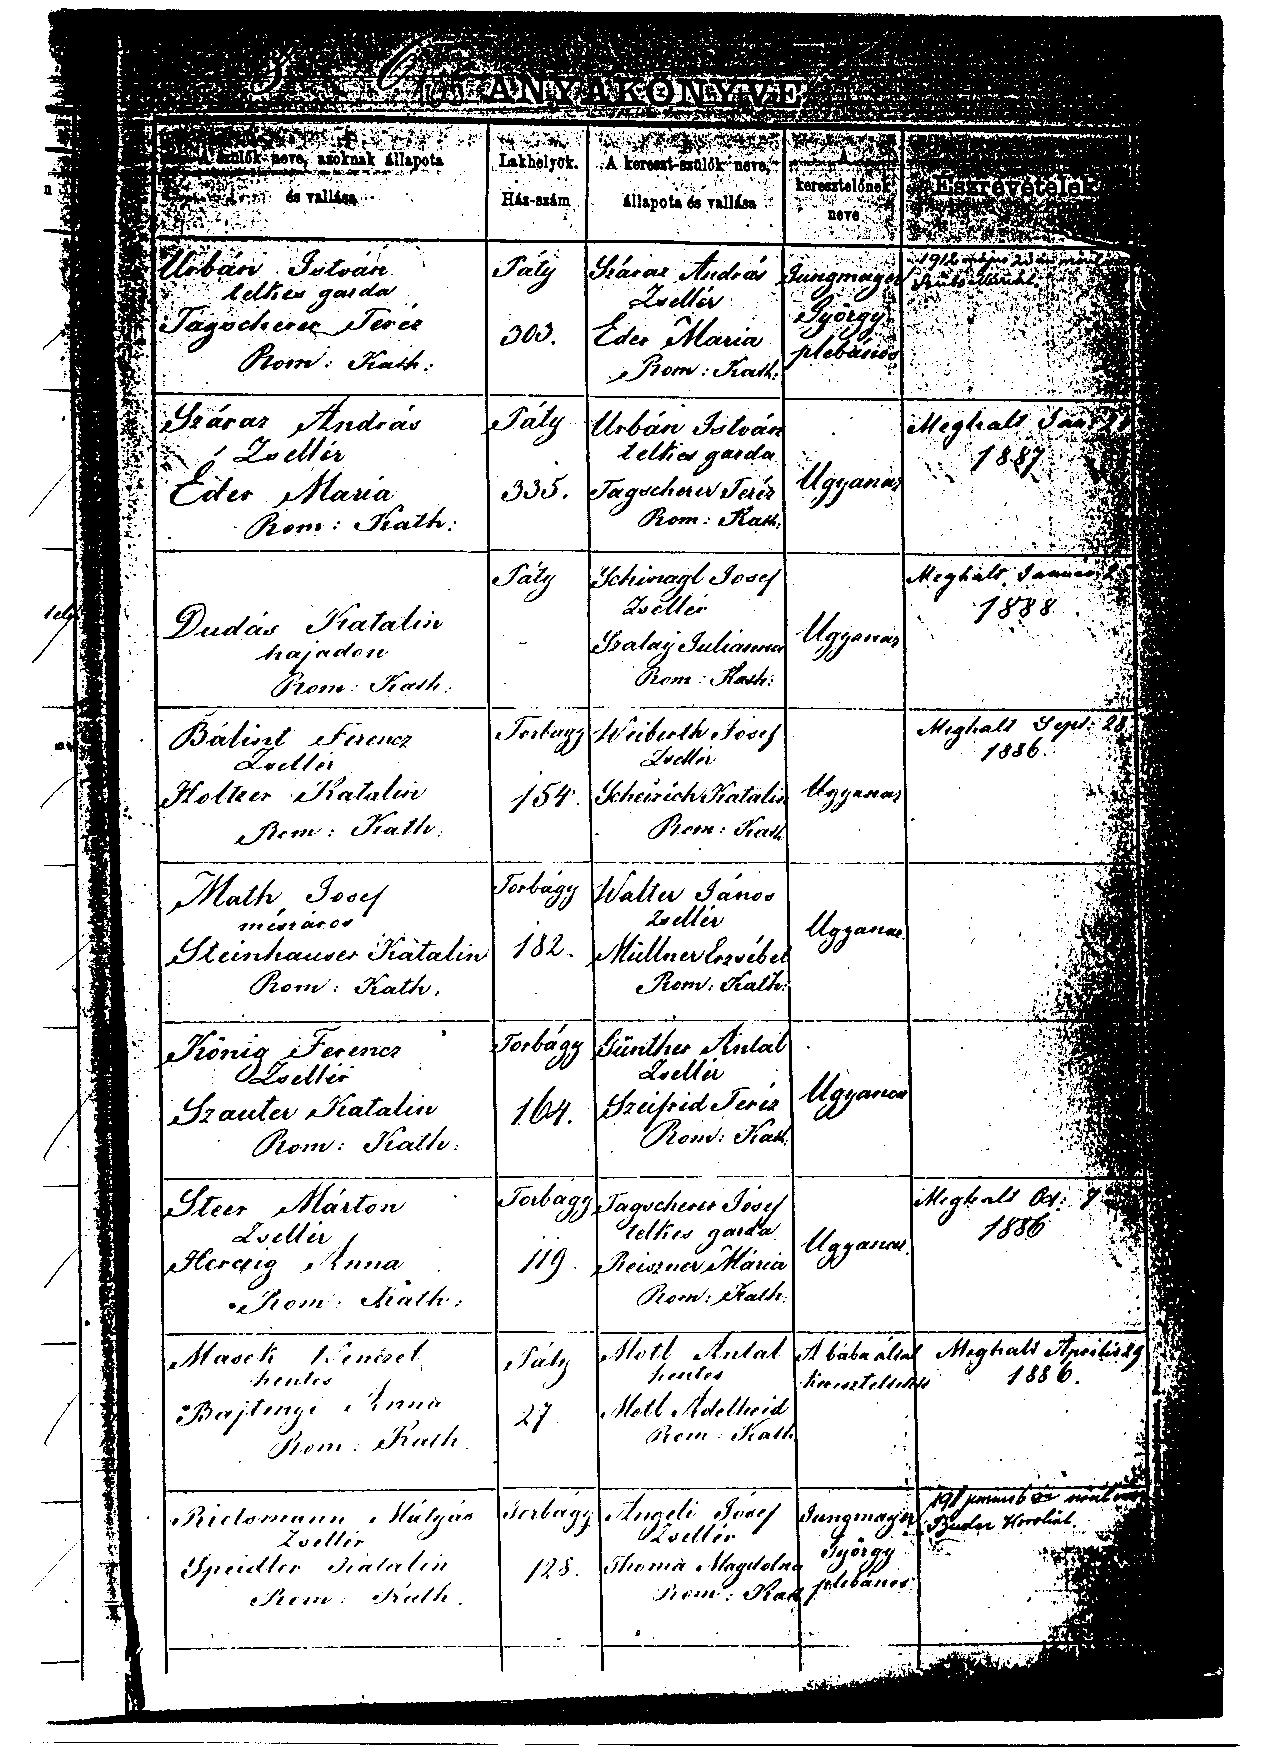 ANYAKÖNYVE
A szülők neve, azoknak állapota
és vallása
Lakhelyök.
Ház-szám
A kereszt-szülők neve,
állapota és vallása
A
keresztelőnek
neve
Észrevételek
Urbán István
telkes garda
Tagscherer Teréz
Rom: Kath:
Páty
303.
Száraz András
Zsellér
Eder Maria
Rom: Kath:
Jungmayer
György
plebános
1912
Száraz András
Zsellér
Éder Maria
Rom: Kath:
Páty
335.
Urbán István
telkes garda
Tagscherer Teréz
Rom: Kath.
Ugyanaz
Meghalt
1887
Dudás Katalin
hajadon
Rom: Kath:
Páty
-
Schinagl Josef
Zsellér
Szalay Julianna
Rom: Kath:
Ugyanaz
Meghalt Január
1888
Bálint Ferencz
Zsellér
Holtzer Katalin
Rom: Kath.
Torbágy
154.
Weiberth Josef
Zsellér
Scheirich Katalin
Rom: Kath
Ugyanaz
Meghalt Sept: 28
1886.
Math Josef
mészáros
Steinhauser Katalin
Rom: Kath.
Torbágy
182.
Walter János
Zsellér
Müllner Erzsébet
Rom: Kath:
Ugyanaz
König Ferencz
Zsellér
Szauter Katalin
Rom: Kath:
Torbágy
164.
Günther Antal
Zsellér
Szeifrid Teréz
Rom: Kath
Ugyanaz
Steer Márton
Zsellér
Herczig Anna
Rom: Kath:
Torbágy
119.
Tagscherer Josef
telkes garda
Reiszner Mária
Rom: Kath:
Ugyanaz.
Meghalt Oct: 7
1886
Masek Venczel
hentes
Bajtenyi Anna
Rom: Kath.
Páty
27
Motl Antal
hentes
Motl Adelheid
Rom: Kath
A bába által
kereszteltetett
Meghalt Április 29
1886.
Riedsmann Mátyás
Zsellér
Speidler Katalin
Rom: Kath.
Torbágy
128.
Angeli Josef
Zsellér
Thoma Magdolna
Rom: Kath
Jungmayer
György
plebános